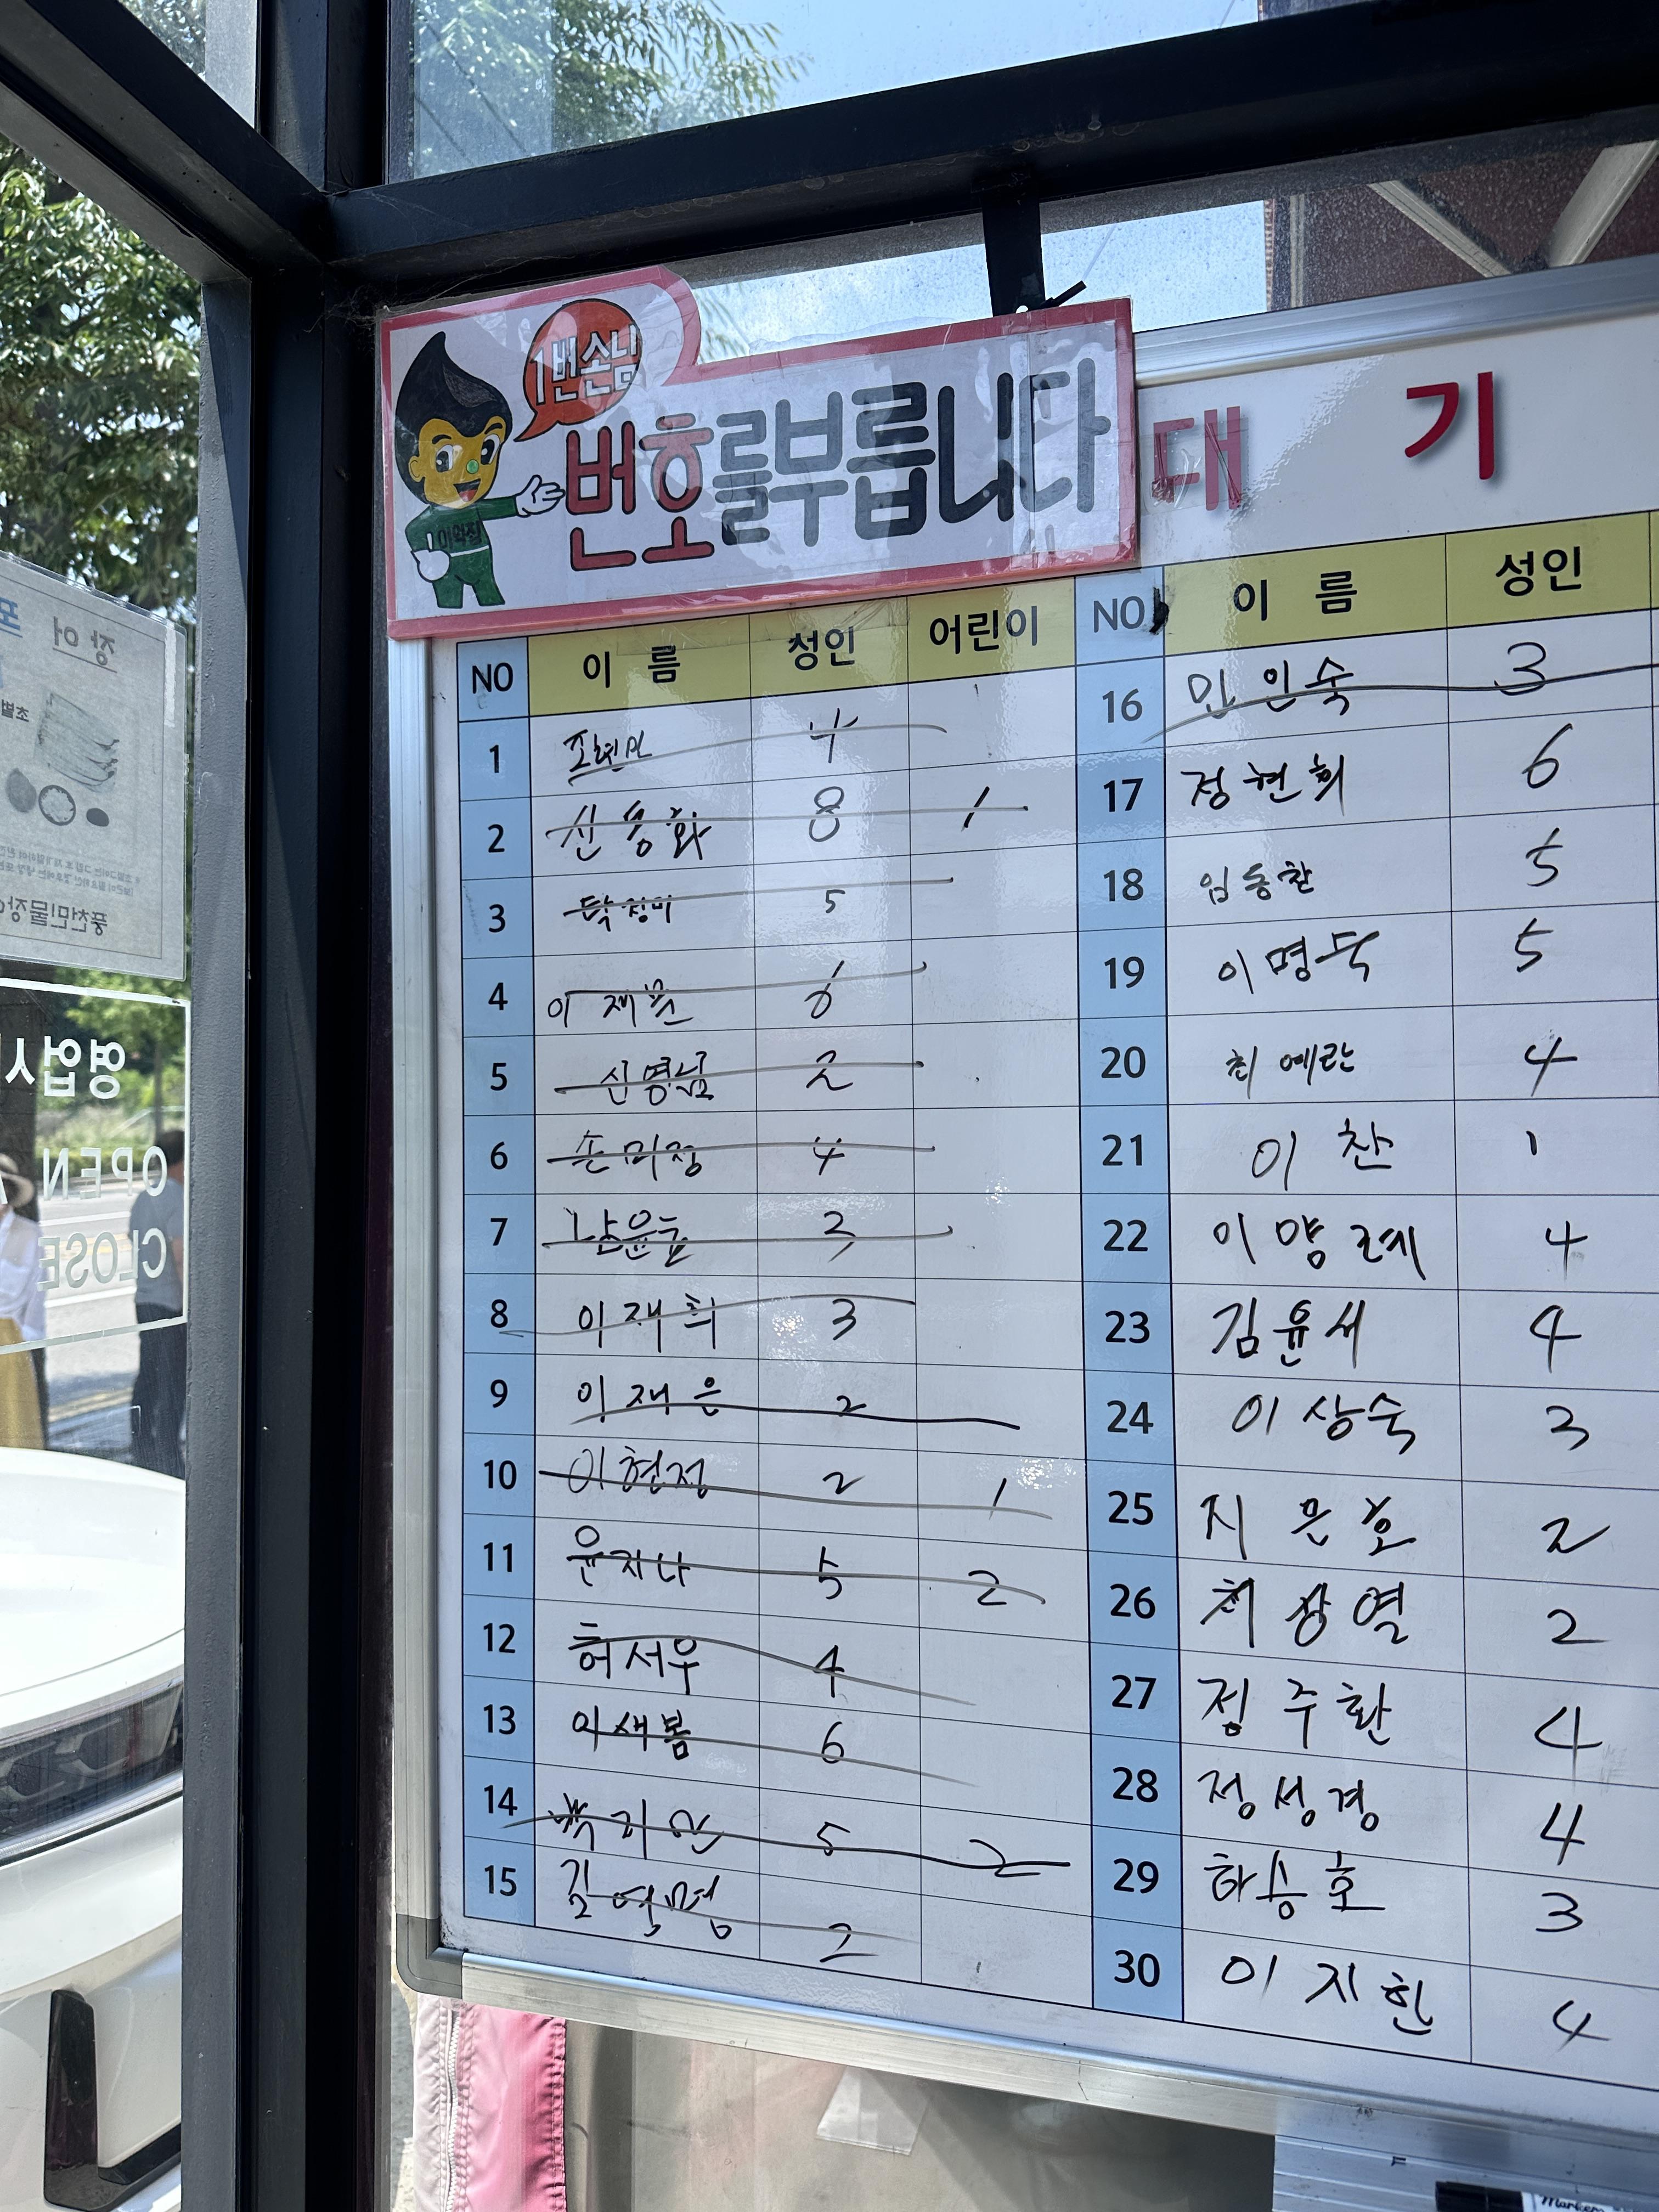 1번손님
번호를부릅니다
대 기
NO 이 름 성인 어린이
1 4
2 신송화 8 1
3 5
4 이재 6
5 신명님 2
6 손미정 4
7 3
8 이재희 3
9 이재은 2
10 이현정 2 1
11 윤지나 5 2
12 허서우 4
13 이새봄 6
14 5 2
15 길영명 2
NO 이 름 성인
16 민인숙 3
17 정현희 6
18 임동찬 5
19 이명득 5
20 최예란 4
21 이찬 1
22 이양례 4
23 김윤서 4
24 이상숙 3
25 지은호 2
26 최창열 2
27 정주환 4
28 정성경 4
29 하승호 3
30 이지한 4
장어
초벌
풍천민물장어
영업시
OPEN
CLOSE